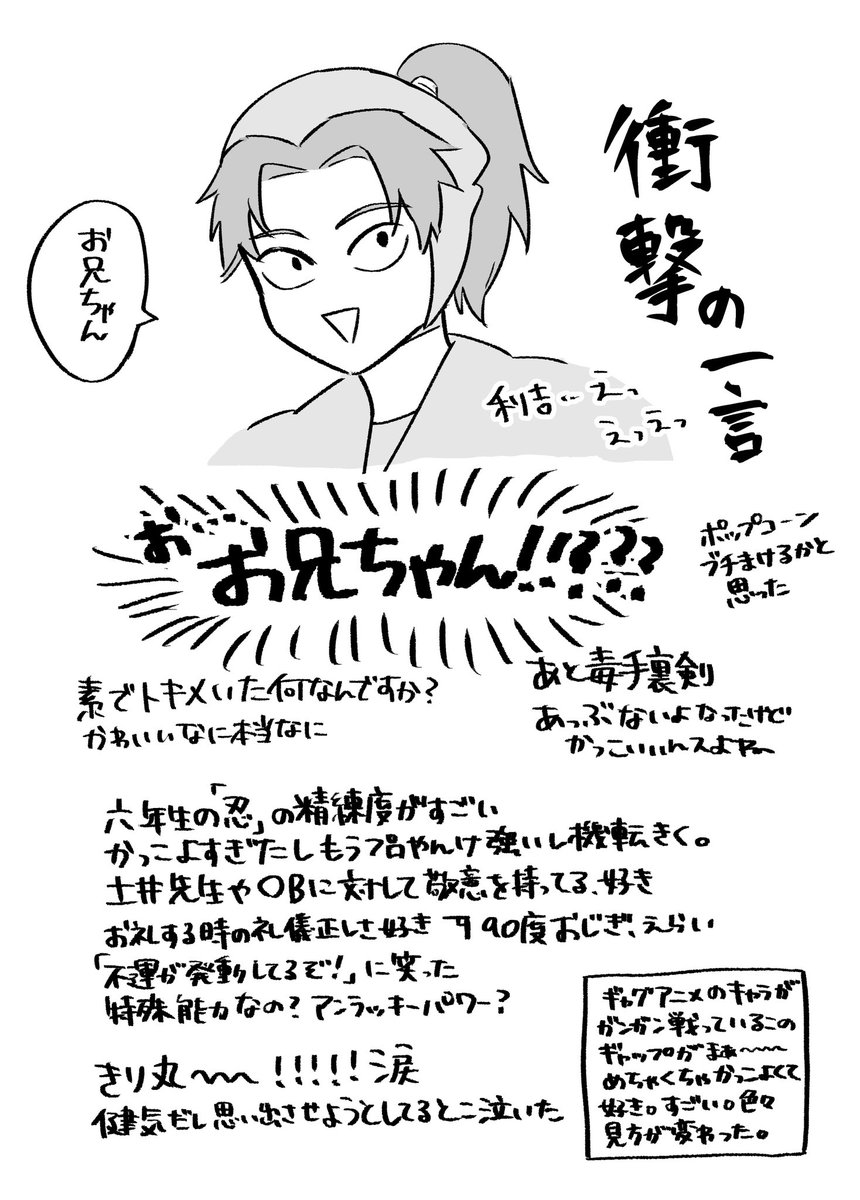 衝撃の一言
お兄ちゃん
利吉…えっ
えっえっ
お…お兄ちゃん!!???
ポップコーン
ブチまけるかと
思った
素でトキメいた何なんですか?
かわいいなに本当なに
あと毒手裏剣
あっぶないよなったけど
かっこいいんスよね〜
六年生の「忍」の精練度がすごい
かっこよすぎだしもうプロやんけ強いし機転きく。
土井先生やOBに対して敬意を持ってる、好き
お礼する時の礼儀正しさ好き 90度おじぎ、えらい
「不運が発動してるぞ!」に笑った
特殊能力なの?アンラッキーパワー?
きり丸〜〜!!!!!涙
健気だし思い出させようとしてるとこ泣いた
ギャグアニメのキャラが
ガンガン戦っているこの
ギャップがまぁ〜〜〜
めちゃくちゃかっこよくて
好き。すごい。色々
見方が変わった。